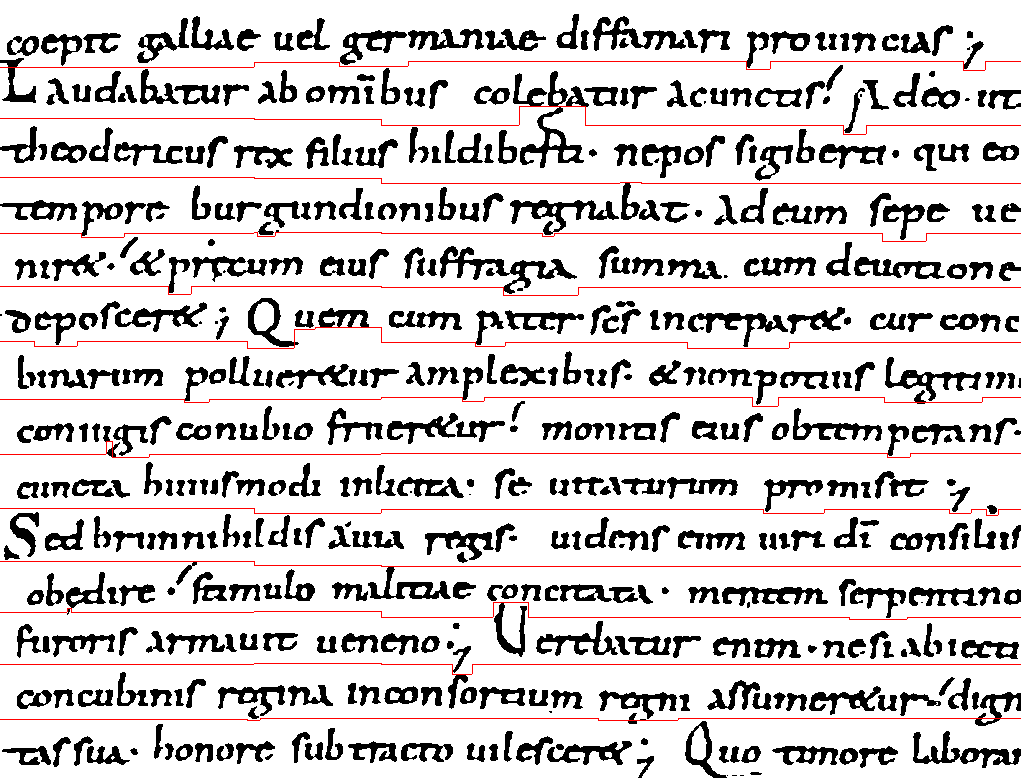 coepit galliae uel germaniae diffamari prouincias ;
Laudabatur ab om̅ibus colebatur acunctis! Adeo·ut
theodericus rex filius hildiberti· nepos sigiberti· qui eo
tempore burgundionibus regnabat· Adeum sepe ue
nir&·! & pricum eius suffragia summa cum deuotione
deposcer& ; Quem cum pater scs̅ increpar&· cur conc
binarum polluer&ur amplexibus· & non potius legitim
coniugis conubio fruer&ur! monitis eius obtemperans·
cuncta huiusmodi inlicita· se uitaturum promisit ;
Sed brunnihildis auia regis· uidens eum uiri di̅ consiliis
obędire·! stimulo malitiae concitata· mentem serpentino
furoris armauit ueneno ; Uerebatur enim·ne si abiecti
concubinis regina inconsortium regni assumer&ur·! dign
tas sua· honore subtracto uilescer& ; Quo timore laborar